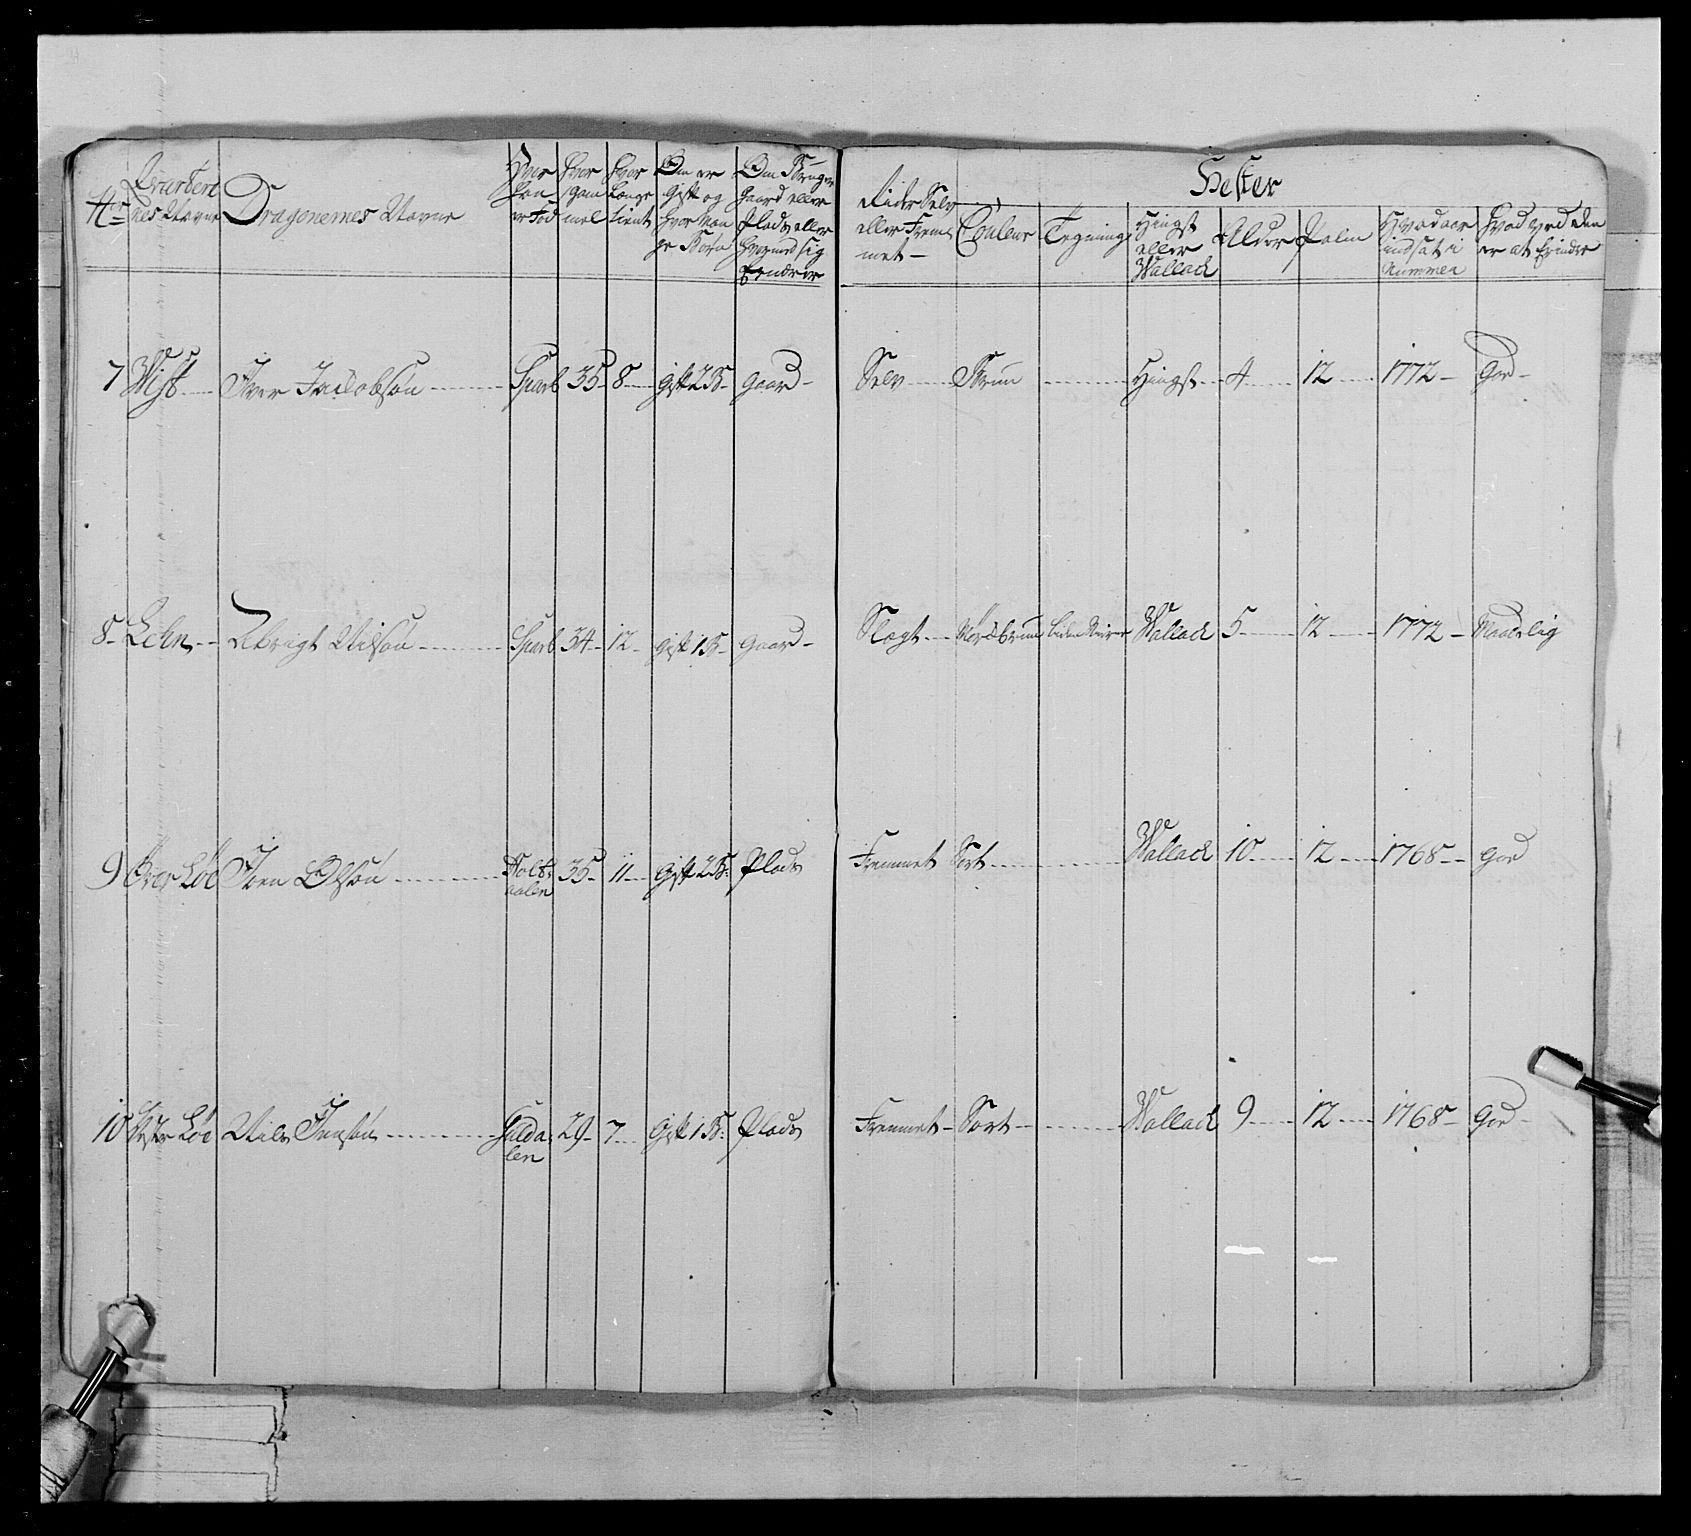 No Qvarterernes Navne
Dragonernes Navne
Hvor han er Fød
Hvor gammel
Hvor Længe tient
Om er Gift og Hvor Mange Børn
Om Bruger Gaard eller Plads eller Hvormed sig Ernærer
Rider Selv eller Fremmet
Hester
Couleur
Tegning
Hingst eller Wallack
Alder
Palm
Hvad aar indsat i Nummer
Hvad ved den er at Erindre
7 Wist Iver Jacobsøn Sparb 35 8 Gift 2 B. Gaard Selv Brun Hingst 4 12 1772 God
8 Lehn Nilsøn Sparb 34 12 Gift 1 B. Gaard Slagt Wallack 5 12 1772 Maadelig
9 Over Løe Joen Olsøn Holtaalen 35 11 Gift 2 B. Plads Fremmet Sort Wallack 10 12 1768 God
10 Løe Nils Jensøn Guldalen 29 7 Gift 1 B. Plads Fremmet Sort Wallack 9 12 1768 God